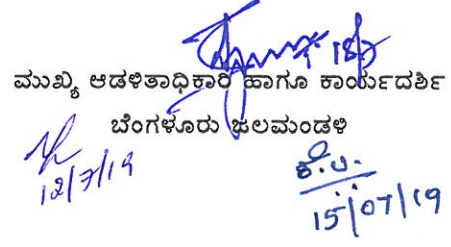 18/7
ಮುಖ್ಯ ಆಡಳಿತಾಧಿಕಾರಿ ಹಾಗೂ ಕಾರ್ಯದರ್ಶಿ
ಬೆಂಗಳೂರು ಜಲಮಂಡಳಿ
12/7/19
ಕೆ.ಪಿ.
15/07/19